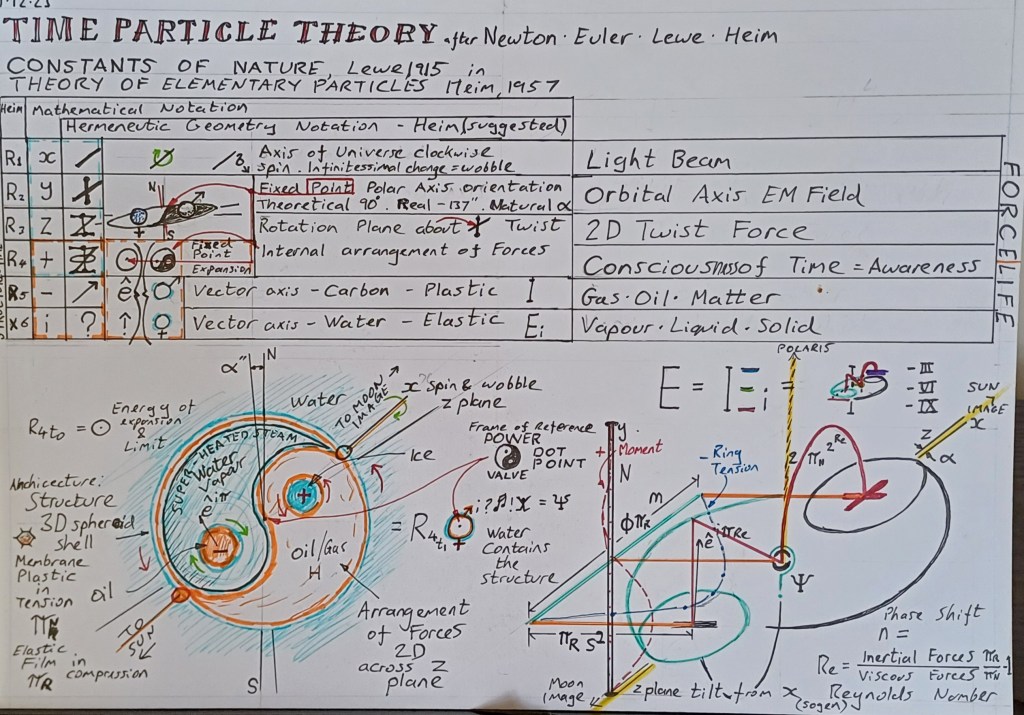 TIME PARTICLE THEORY after Newton · Euler · Lewe · Heim
CONSTANTS OF NATURE, Lewe, 1915 in
THEORY OF ELEMENTARY PARTICLES Heim, 1957
Heim Mathematical Notation
Hermeneutic Geometry Notation - Heim (suggested)
R1 x
Axis of Universe clockwise
spin. Infinitessimal change = wobble
Light Beam
R2 y N
Fixed Point Polar Axis orientation
Theoretical 90°. Real - 137". Natural α
Orbital Axis EM Field
R3 Z + S
Rotation Plane about Twist
2D Twist Force
R4 +
Fixed Point
Expansion
Internal arrangement of Forces
Consciousness of Time = Awareness
R5 - ê ♂ Vector axis - Carbon - Plastic I
Gas · Oil · Matter
X6 i ? ↑ ♀ Vector axis - Water - Elastic Ei
Vapour · Liquid · Solid
FORCE LIFE
α" N
Water
TO MOON
IMAGE
x spin & wobble
z plane
Ice
R4t0 = ⊙
Energy of
expansion
&
Limit
SUPER-HEATED STEAM
Water
Vapour
ê iπ
e
+
-
Oil/Gas
H
Architecture:
Structure
3D spheroid
shell
Membrane
Plastic
in
Tension
Oil
Elastic
Film in
compression
πR
TO
SUN
S
Arrangement
of Forces
2D
across Z
plane
Frame of Reference
POWER
DOT
POINT
VALVE
= R4t1
Water
Contains
the
structure
E = IΞi =
- III
- VI
- IX
POLARIS
SUN
IMAGE
x
Z
α
y
+ Moment
N
- Ring
Tension
m
φπR
ê
iπRe
Ψ
πR S²
Moon
Image
z plane tilt from x
(sogen)
Phase Shift
n =
Re = Inertial Forces
Viscous Forces
Reynolds Number